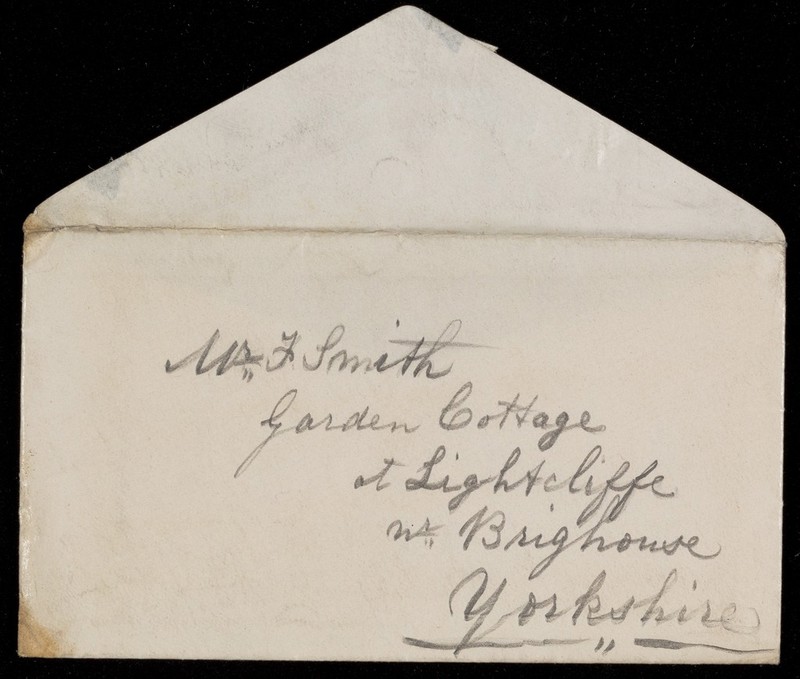 Mr. F Smith
Garden Cottage
at Lightcliffe
nr. Brighouse
Yorkshire